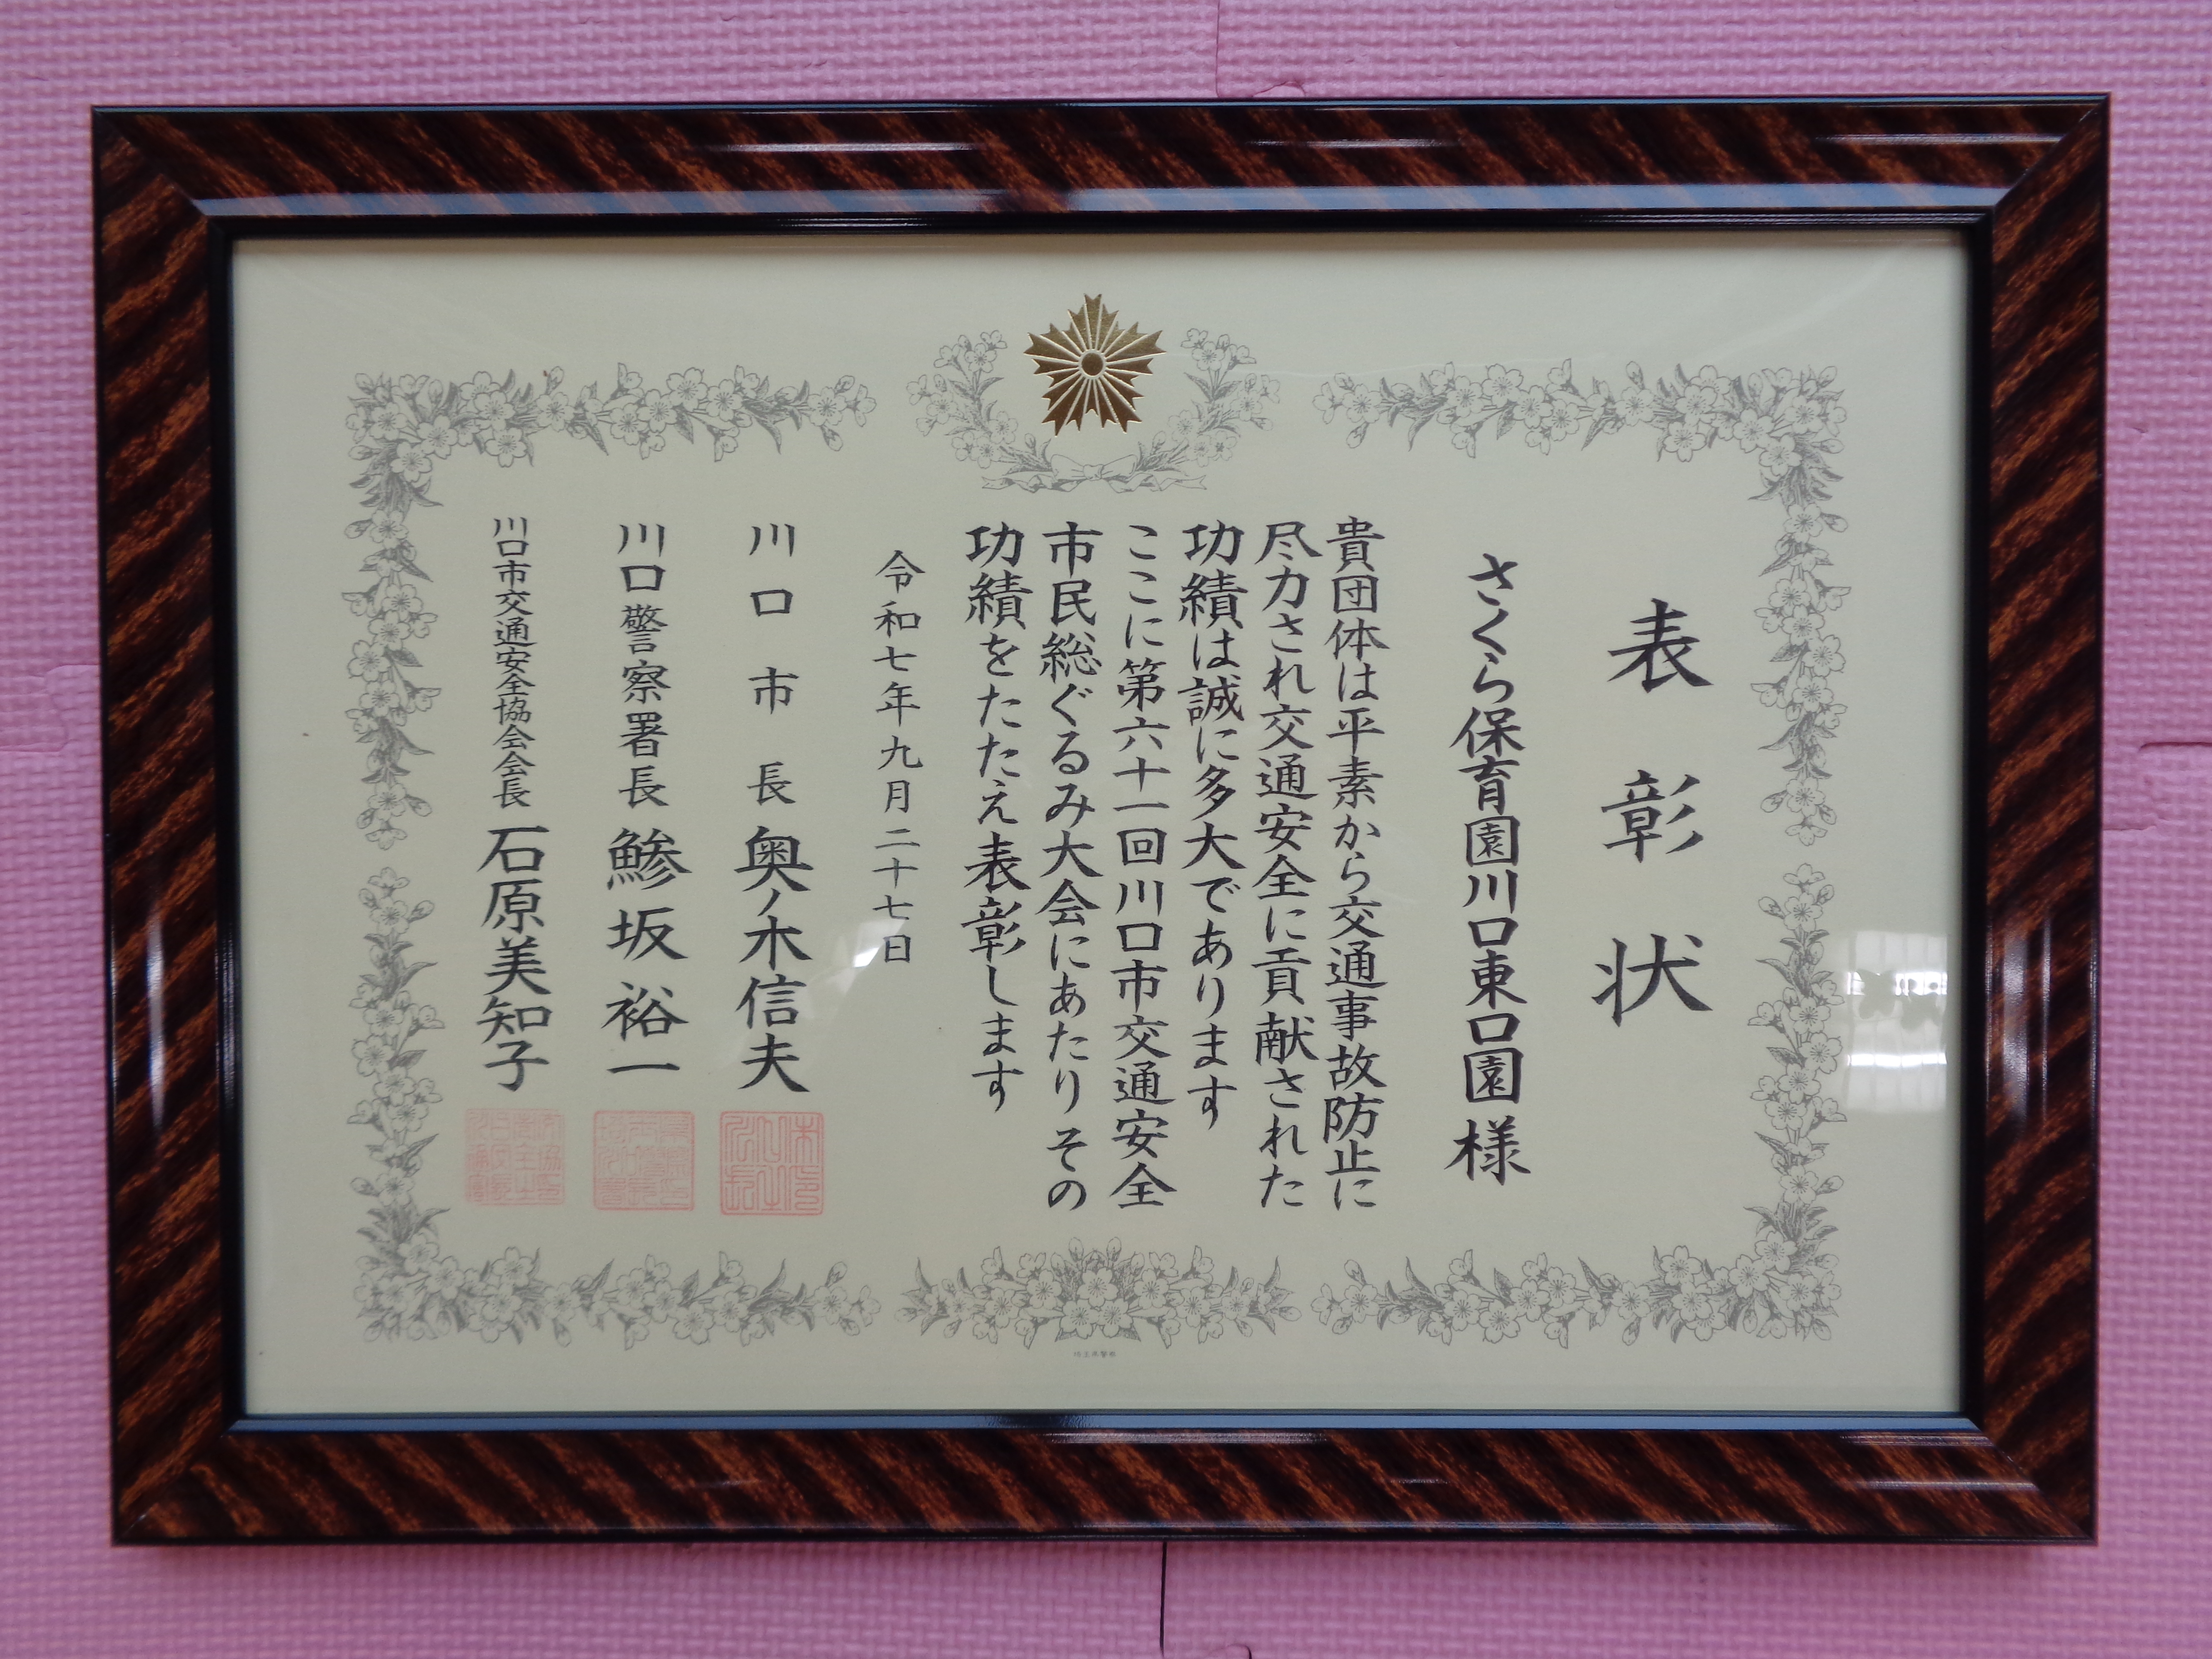 表彰状
さくら保育園川口東口園様
貴団体は平素から交通事故防止に
尽力され交通安全に貢献された
功績は誠に多大であります
ここに第六十一回川口市交通安全
市民総ぐるみ大会にあたりその
功績をたたえ表彰します
令和七年九月二十七日
川口市長 奥ノ木信夫
川口警察署長 鯵坂裕一
川口市交通安全協会会長 石原美知子
埼玉県警察